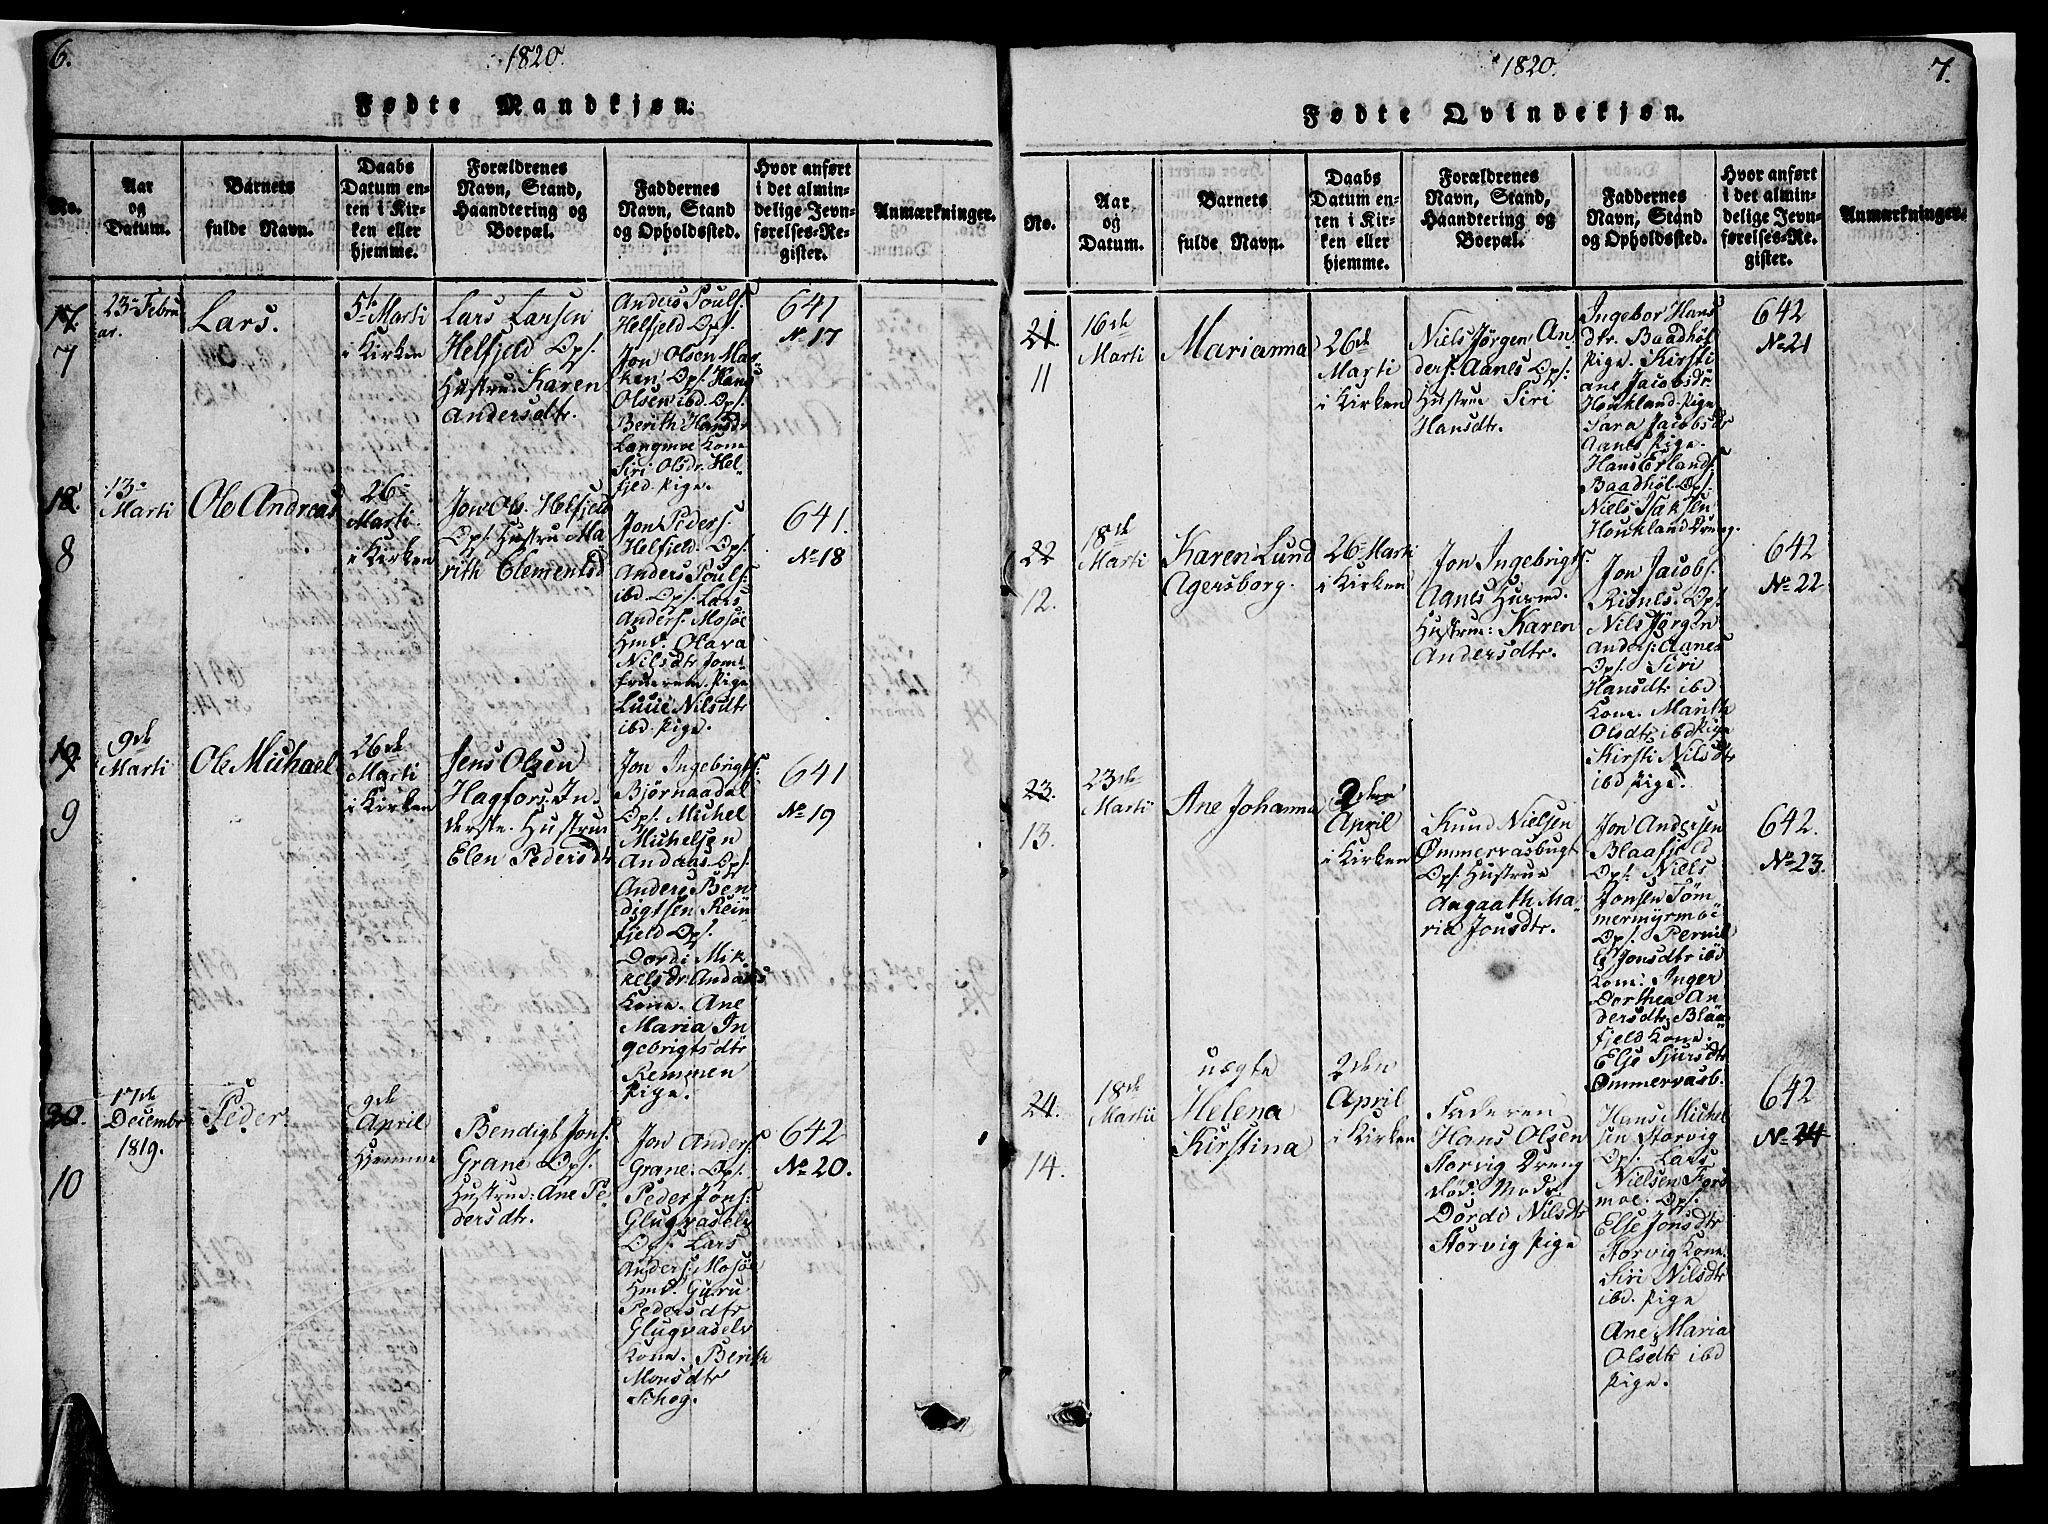 6.
1820.
Fødte Mandkjøn.
No.
Aar
og
Datum.
Barnets
fulde Navn.
Daabs
Datum en-
ten i Kir-
ken eller
hjemme.
Forældrenes
Navn, Stand,
Haandtering og
Boepæl.
Faddernes
Navn, Stand
og Opholdssted.
Hvor anført
i det almin-
delige Jevn-
førelses-Re-
gister.
Anmærkninger.
17.
7
23- Febru
ar.
Lars.
5te Marti
i Kirken
Lars Larsen
Helfjeld Ops.
Hustru: Karen
Andersdtr.
Anders Pouls.
Helfjeld Ops.
Jon Olsen Mar
ken Ops. Hans
Olsen ibd. Ops.
Berith Hansdr
Langmoe Kone
Siri Olsdr. Hel
fjeld Pige.
641
No 17
18
8
13-
Marti
Ole Andreas
26-
Marti
i Kirken
Jon Ols. Helfjeld
Ops. Hustru Ma
rith Clementsd
Jon Peders.
Helfjeld. Ops.
Anders Pouls.
ibd. Ops. Lars
Anders. Mosöe
Hmd. Olava
Nilsdtr Jom
fruerem. Pige
Lucie Nilsdtr
ibd. Pige.
641.
No 18
19
9
9de
Marti
Ole Michael
26de
Marti
i Kirken
Jens Olsen
Hagfors. In
derste. Hustru
Elen Pedersdtr
Jon Ingebrigts.
Bjørnaadal
Ops. Michel
Michelsen
Andaas. Ops.
Anders Ben
digtsen Rein
fjeld Ops.
Dordi Mik
kelsdr. Andaas
Kone. Ane
Maria In
gebrigtsdtr
Remmen
Pige.
641
No 19
20.
10
17de
Decembr
1819.
Peder.
9de
April
Hjemme
Bendigt Jons.
Grane Ops.
Hustru: Ane Pe
dersdtr.
Jon Anders.
Grane. Ops.
Peder Jons.
Glugvaselv
Ops. Lars
Anders. Mosöe
Hmd. Guru
Pedersdtr
Glugvaselv
Kone. Berith
Monsdtr
Schog.
642
No 20.
1820.
7.
Fødte Qvindekjøn.
No.
Aar
og
Datum.
Barnets
fulde Navn.
Daabs
Datum en-
ten i Kir-
ken eller
hjemme.
Forældrenes
Navn, Stand,
Haandtering og
Boepæl.
Faddernes
Navn, Stand
og Opholdssted.
Hvor anført
i det almin-
delige Jevn-
førelses-Re-
gister.
Anmærkninger.
21.
11
16de
Marti
Marianna
26de
Marti
i Kirken
Niels Jörgen An
ders. Aanes Ops.
Hustrue Siri
Hansdtr.
Ingebor Hans
dtr. Baadhöl
Pige. Kirsti
ane Jacobsdr
Houkland Pige
Sara Jacobsdtr
Aanes Pige.
Hans Erlands.
Baadhöl. Ops.
Niels Isaksen
Houkland Dreng.
642
No 21
22
12.
18de
Marti
Karen Lund
Agersborg.
26 Marti
i Kirken
Jon Ingebrigts.
Aanes Huusmd.
Hustrue: Karen
Andersdtr.
Jon Jacobs.
Risnes. Ops.
Nils Jørgen
Anders: Aanes
Ops. Siri
Hansdtr ibd
Kone. Marith
Olsdtr ibd Pige
Kirsti Nilsdtr
ibd Pige.
642
No 22
23.
13.
23de
Martii
Ane Johanna
2den
April
i Kirken
Knud Nielsen
Ømmervasbugt
Ops. Hustrue
Aagaath Ma
ria Jonsdtr.
Jon Andersen
Blaafjeld
Ops. Niels
Jonsen Tøm
mermyrmoe
Ops. Pernil
le Jonsdtr ibd
Kone. Inger
Dorthea An
dersdtr. Blaa
fjeld Kone.
Else Sjursdtr
Ømmervasb.
642.
No 23.
24.
14.
18de
Martii
uægte
Helena
Kirstina
2den
April
i Kirken
Faderen
Hans Olsen
Storvig Dreng
död. Modr.
Dordi Nilsdtr
Storvig Pige
Hans Michel
sen Storvig
Ops. Lars
Nielsen Fors
moe. Ops.
Else Jonsdtr
Storvig Kone.
Siri Nilsdtr
ibd. Pige
Ane Maria
Olsdtr ibd
Pige.
642
No 24